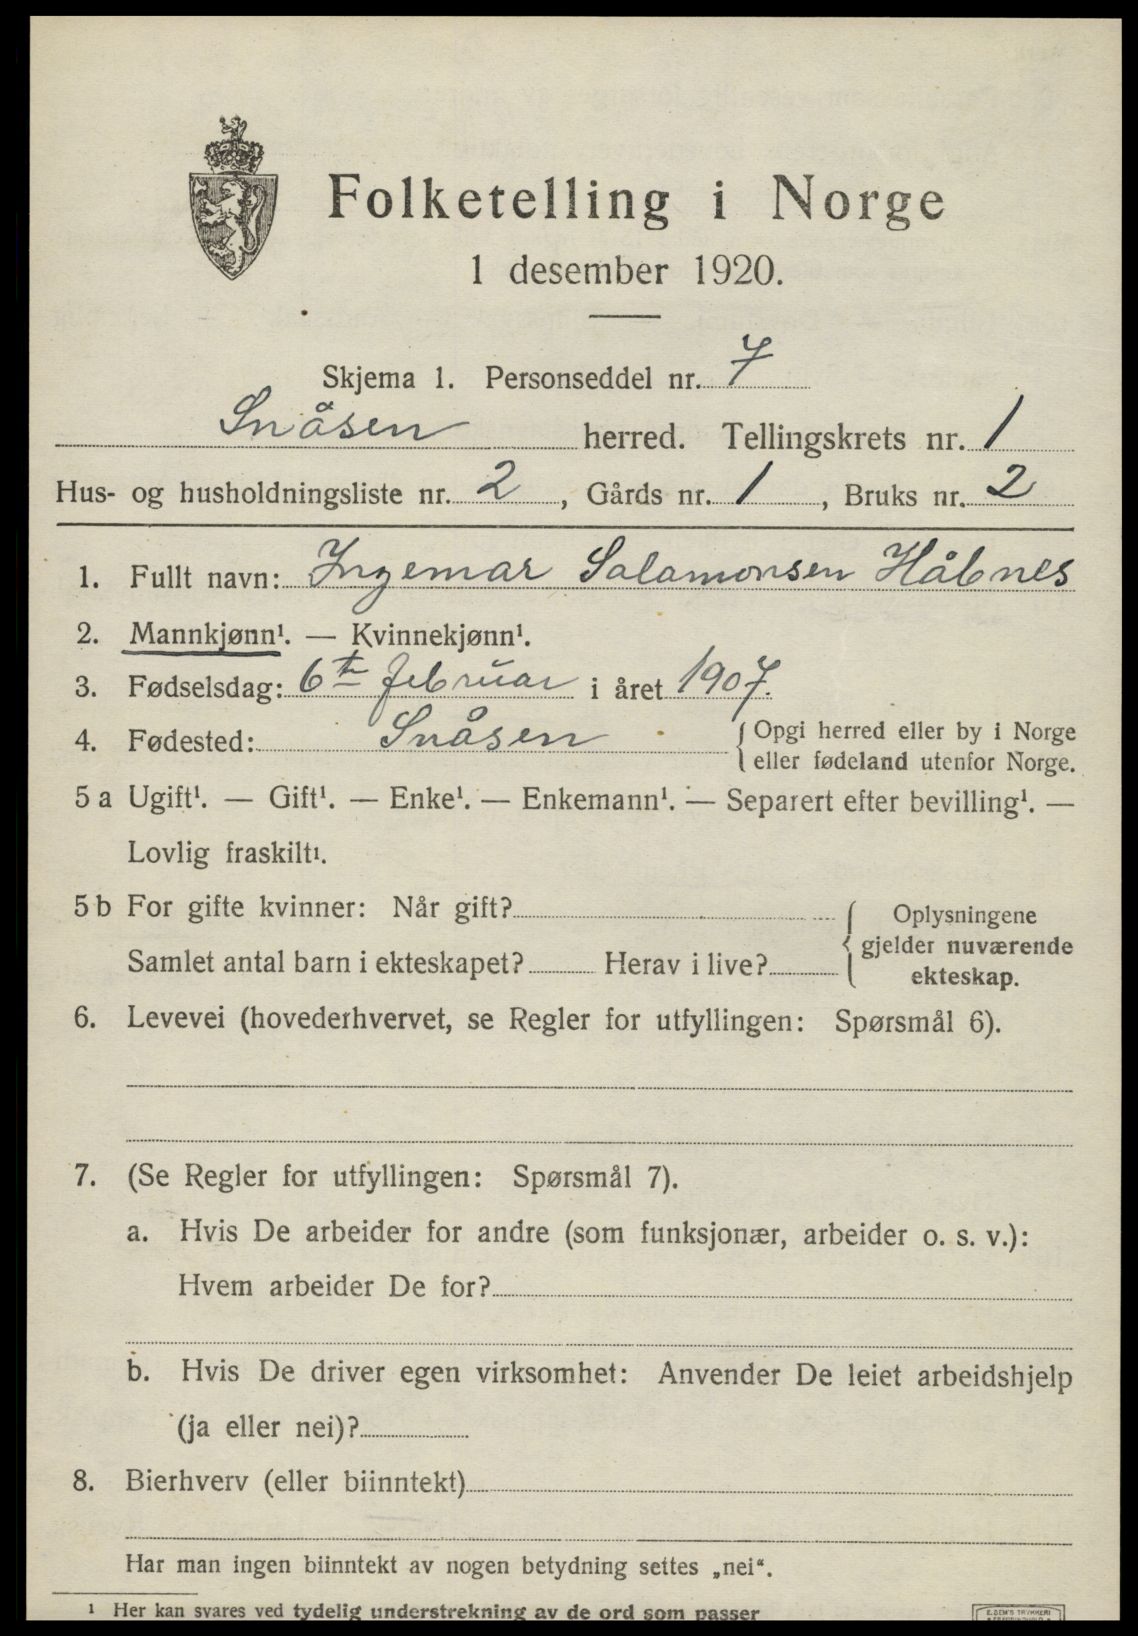 Folketelling i Norge
1 desember 1920.
Skjema 1. Personseddel nr. 7
Snåsen herred. Tellingskrets nr. 1
Hus- og husholdningsliste nr. 2, Gårds nr. 1, Bruks nr. 2
1. Fullt navn: Ingemar Salamonsen Håbnes
2. Mannkjønn¹. — Kvinnekjønn¹.
3. Fødselsdag: 6te februar i året 1907.
4. Fødested: Snåsen { Opgi herred eller by i Norge
eller fødeland utenfor Norge.
5 a Ugift¹. — Gift¹. — Enke¹. — Enkemann¹. — Separert efter bevilling¹. —
Lovlig fraskilt¹.
5 b For gifte kvinner: Når gift?
Samlet antal barn i ekteskapet? Herav i live?
{ Oplysningene
gjelder nuværende
ekteskap.
6. Levevei (hovederhvervet, se Regler for utfyllingen: Spørsmål 6).
7. (Se Regler for utfyllingen: Spørsmål 7).
a. Hvis De arbeider for andre (som funksjonær, arbeider o. s. v.):
Hvem arbeider De for?
b. Hvis De driver egen virksomhet: Anvender De leiet arbeidshjelp
(ja eller nei)?
8. Bierhverv (eller biinntekt)
Har man ingen biinntekt av nogen betydning settes „nei“.
¹ Her kan svares ved tydelig understrekning av de ord som passer